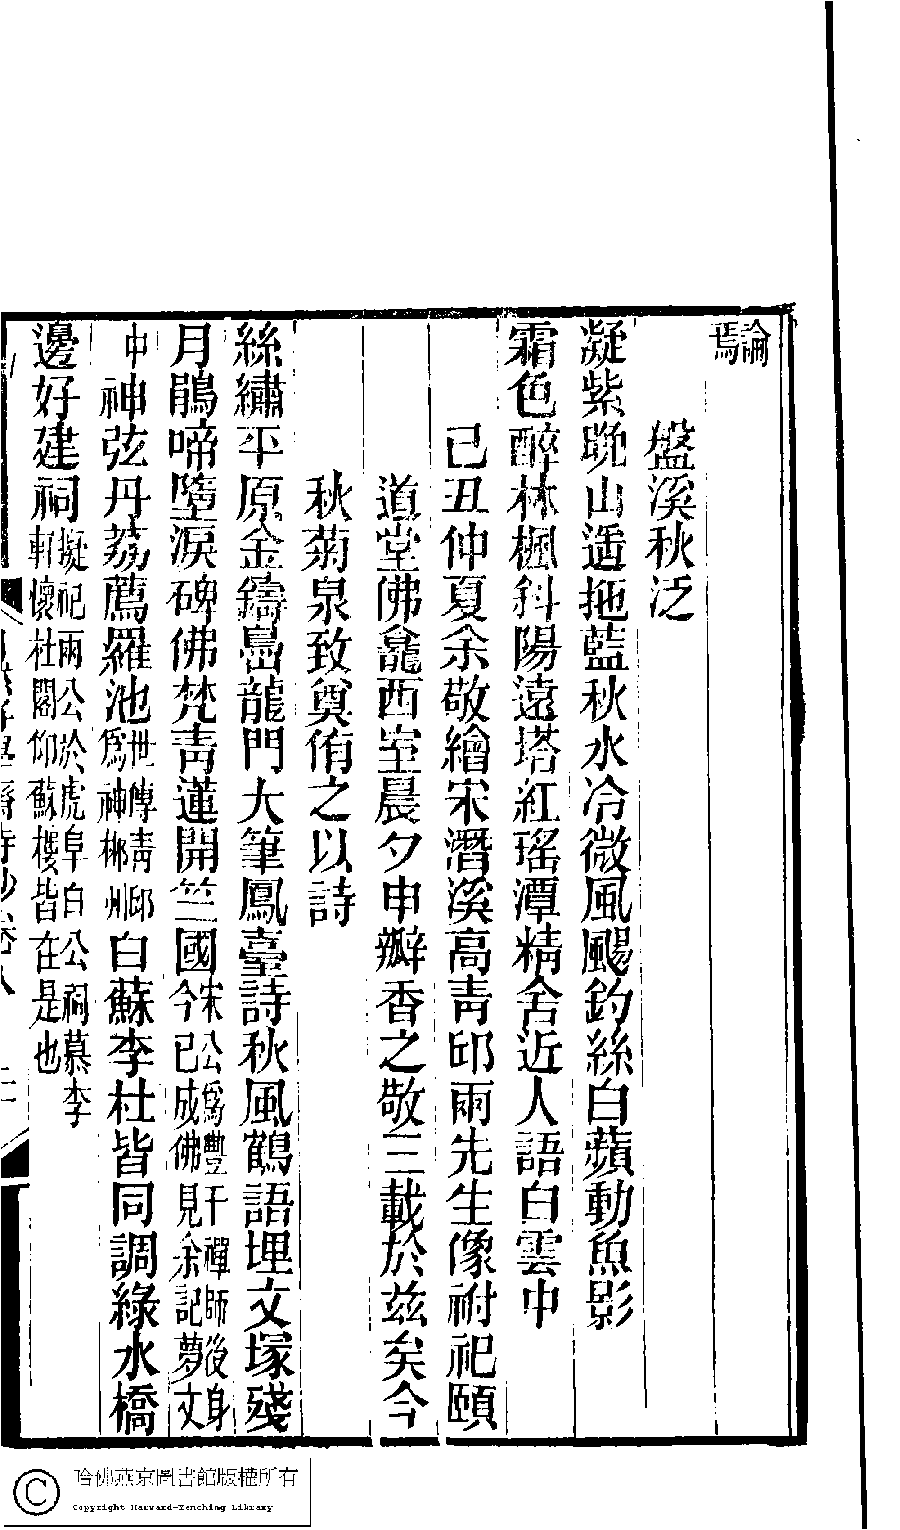 論焉
盤溪秋泛
凝紫晩山遥拖藍秋水冷微風颺釣絲白蘋動魚影
霜色醉林楓斜陽遠塔紅瑤潭精舍近人語白雲中
己丑仲夏余敬繪宋潛溪高青邱兩先生像祔祀頤
道堂佛龕西室晨夕申瓣香之敬三載於兹矣今
秋菊泉致奠侑之以詩
絲繡平原金鑄島龍門大筆鳳臺詩秋風鶴語埋文塚殘
月鵑啼墮淚碑佛梵青蓮開竺國宋公爲豐干禪師後身今已成佛見余記夢文
中神弦丹荔薦羅池世傳青邱爲神郴州白蘇李杜皆同調綠水橋
邊好建祠擬祀兩公於虎阜白公祠慕李軒懷杜閣仰蘇樓皆在是也
哈佛燕京圖書館版權所有
Copyright Harvard-Yenching Library